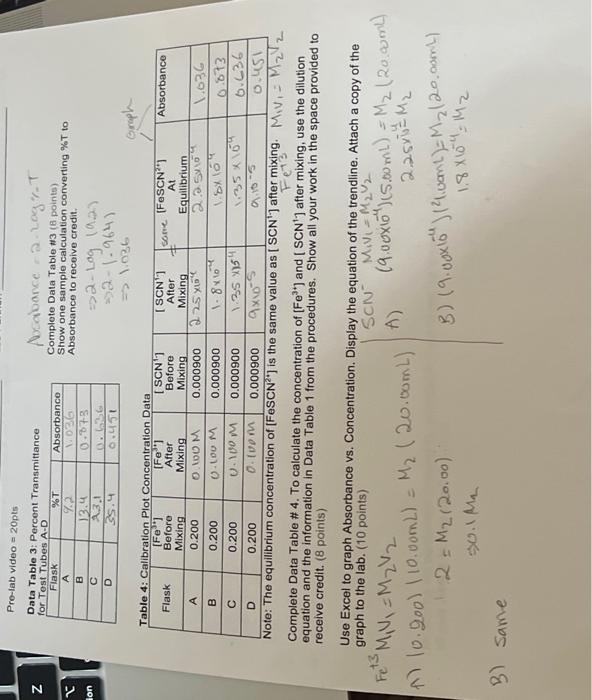 Pre-lab video = 20pts
Data Table 3: Percent Transmittance
for Test Tubes A-D
Flask %T Absorbance
A 9.2 1.036
B 13.4 0.873
C 23.1 0.636
D 35.4 0.451
Absorbance = 2 - Log % T
Complete Data Table #3 (8 points)
Show one sample calculation converting %T to
Absorbance to receive credit.
=> 2 - Log (9.2)
=> 2 - (.9641)
=> 1.036
Graph
Table 4: Calibration Plot Concentration Data
same
Flask [Fe³⁺] Before Mixing [Fe³⁺] After Mixing [SCN¹⁻] Before Mixing [SCN¹⁻] After Mixing [FeSCN²⁺] At Equilibrium Absorbance
A 0.200 0.100 M 0.000900 2.25x10⁻⁴ 2.25x10⁻⁴ 1.036
B 0.200 0.100 M 0.000900 1.8x10⁻⁴ 1.8x10⁻⁴ 0.873
C 0.200 0.100 M 0.000900 1.35x10⁻⁴ 1.35x10⁻⁴ 0.636
D 0.200 0.100 M 0.000900 9x10⁻⁵ 9.10⁻⁵ 0.451
Note: The equilibrium concentration of [FeSCN²⁺] is the same value as [SCN¹⁻] after mixing.
Fe+3 M₁V₁ = M₂V₂
Complete Data Table # 4. To calculate the concentration of [Fe³⁺] and [ SCN¹⁻] after mixing, use the dilution
equation and the information in Data Table 1 from the procedures. Show all your work in the space provided to
receive credit. (8 points)
Use Excel to graph Absorbance vs. Concentration. Display the equation of the trendline. Attach a copy of the
graph to the lab. (10 points)
Fe+3 M₁V₁ = M₂V₂
A) (0.200)(10.00mL) = M₂ (20.00mL)
2 = M₂ (20.00)
=0.1 M₂
B) same
SCN⁻ M₁V₁ = M₂V₂
A) (9.00x10⁻⁴)(5.00mL) = M₂ (20.00mL)
2.25x10⁻⁴ = M₂
B) (9.00x10⁻⁴)(4.00mL) = M₂ (20.00mL)
1.8x10⁻⁴ = M₂
Z
ion